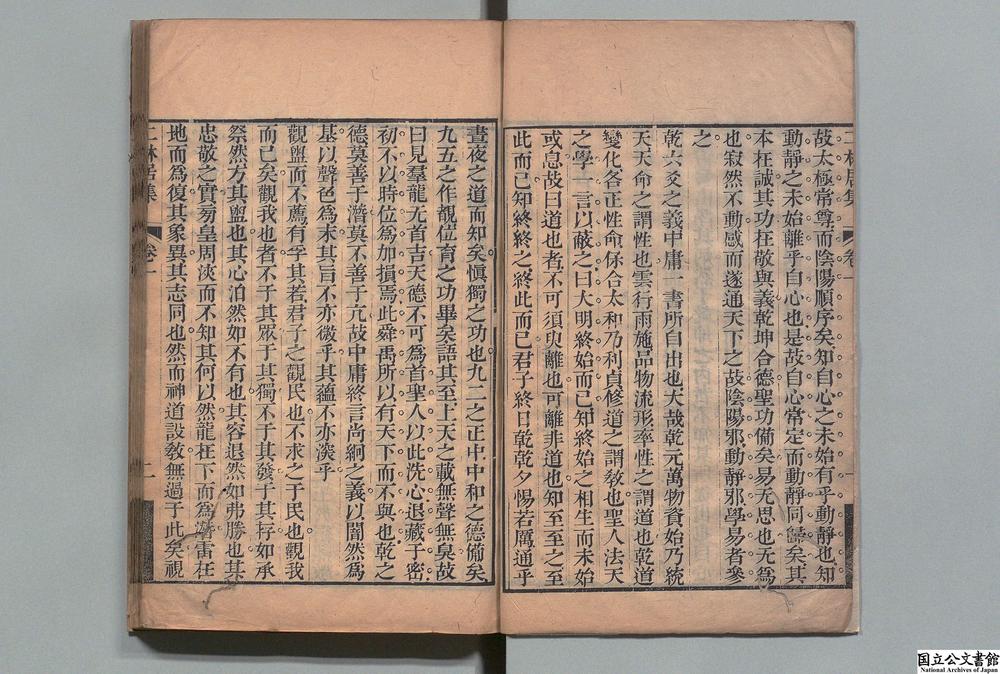 二林居集 卷一 一
故太極常尊而陰陽順序矣知自心之未始有乎動靜也知
動靜之未始離乎自心也是故自心常定而動靜同歸矣其
本在誠其功在敬與義乾坤合德聖功備矣易无思也无為
也寂然不動感而遂通天下之故陰陽邪動靜邪學易者參
之
乾六爻之義中庸一書所自出也大哉乾元萬物資始乃統
天天命之謂性也雲行雨施品物流形率性之謂道也乾道
變化各正性命保合太和乃利貞修道之謂敎也聖人法天
之學一言以蔽之曰大明終始而已知終始之相生而未始
或息故曰道也者不可須臾離也可離非道也知至至之至
此而已知終終之終此而已君子終日乾乾夕惕若厲通乎
晝夜之道而知矣愼獨之功也九二之正中中和之德備矣
九五之作覩位育之功畢矣語其至上天之載無聲無臭故
曰見羣龍无首吉天德不可爲首聖人以此洗心退藏于密
初不以時位爲加損焉此舜禹所以有天下而不與也乾之
德莫善于潛莫不善于亢故中庸終言尚絅之義以闇然爲
基以聲色爲末其旨不亦微乎其蘊不亦深乎
觀盥而不薦有孚其若君子之觀民也不求之于民也觀我
而已矣觀我也者不于其眾于其獨不于其發于其存如承
祭然方其盥也其心泊然如不有也其容退然如弗勝也其
忠敬之實旁皇周浹而不知其何以然龍在下而爲潛雷在
地而爲復其象異其志同也然而神道設敎無過于此矣視
二林居集 卷一 二
国立公文書館
National Archives of Japan